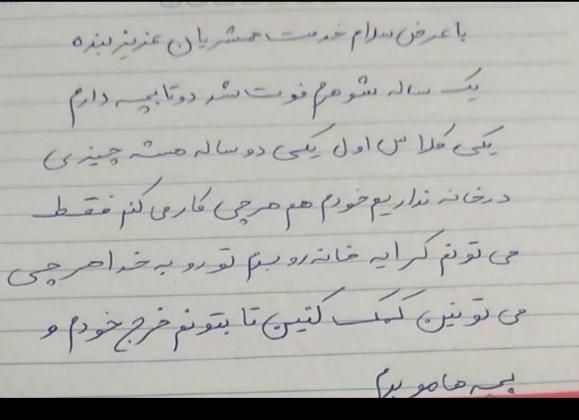 با عرض سلام خدمت همشریان عزیز بنده
یک ساله شوهرم فوت شد دوتا بچه دارم
یکی کلاس اول یکی دو ساله هسته چیزی
درخانه نداریم خودم هم هرچی کار می کنم فقط
می تونم کرایه خانه رو بدم تورو به خدا هرچی
می تونین کمک کنین تا بتونم خرج خودم و
بچه هامو بدم